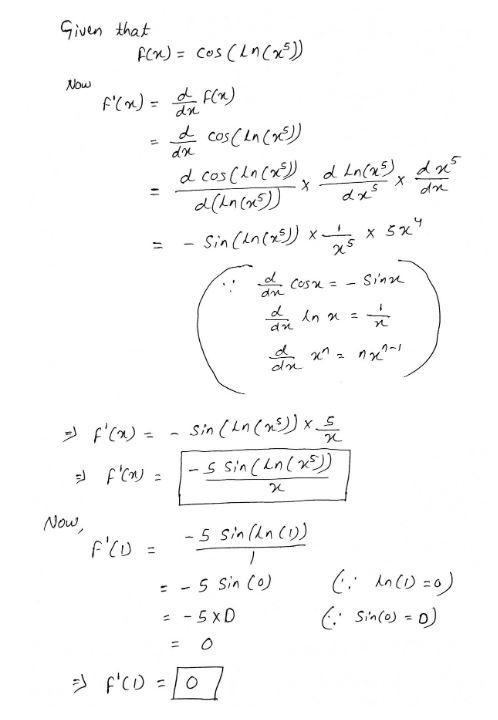 Given that
f(x) = cos(ln(x⁵))
Now
f'(x) = d/dx f(x)
= d/dx cos(ln(x⁵))
= d cos(ln(x⁵))/d(ln(x⁵)) × d ln(x⁵)/dx⁵ × dx⁵/dx
= - Sin(ln(x⁵)) × 1/x⁵ × 5x⁴
(∵ d/dx cosx = - Sinx
d/dx ln x = 1/x
d/dx xⁿ = nxⁿ⁻¹)
⇒ f'(x) = - Sin(ln(x⁵)) × 5/x
⇒ f'(x) = -5 Sin(ln(x⁵))/x
Now,
f'(1) = -5 Sin(ln(1))/1
= -5 Sin(0) (∵ ln(1) = 0)
= -5×0 (∵ Sin(0) = 0)
= 0
⇒ f'(1) = 0